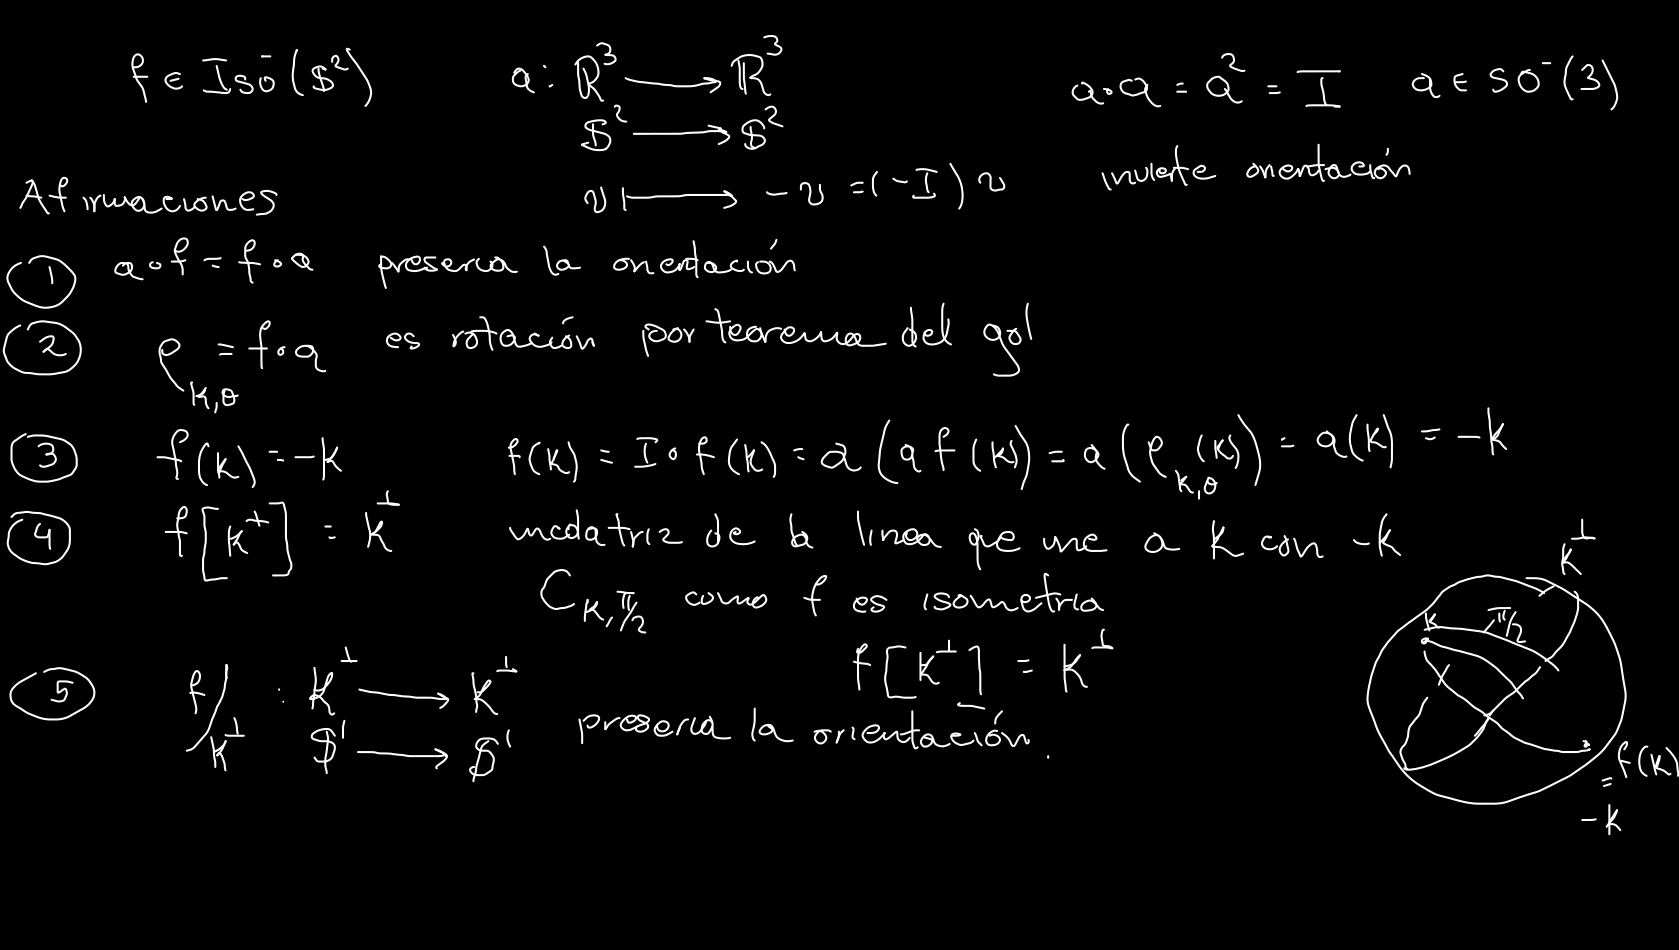 f ∈ Iso⁻($²) a: ℝ³ ⟶ ℝ³ a∘a = a² = I a ∈ SO⁻(3)
$² ⟶ $²
Afirmaciones v ⟼ -v = (-I) v invierte orientación
① a∘f = f∘a preserva la orientación
② ρ_{k,θ} = f∘a es rotación por teorema del gol
③ f(k) = -k f(k) = I∘f(k) = a(a f(k)) = a(ρ_{k,θ}(k)) = a(k) = -k
④ f[k^⊥] = k^⊥ mediatriz de la linea que une a k con -k
C_{k,π/2} como f es isometria
f[k^⊥] = k^⊥
⑤ f/k^⊥ : k^⊥ ⟶ k^⊥
$¹ ⟶ $¹ preserva la orientación.
k^⊥
k π/2
= f(k)
-k